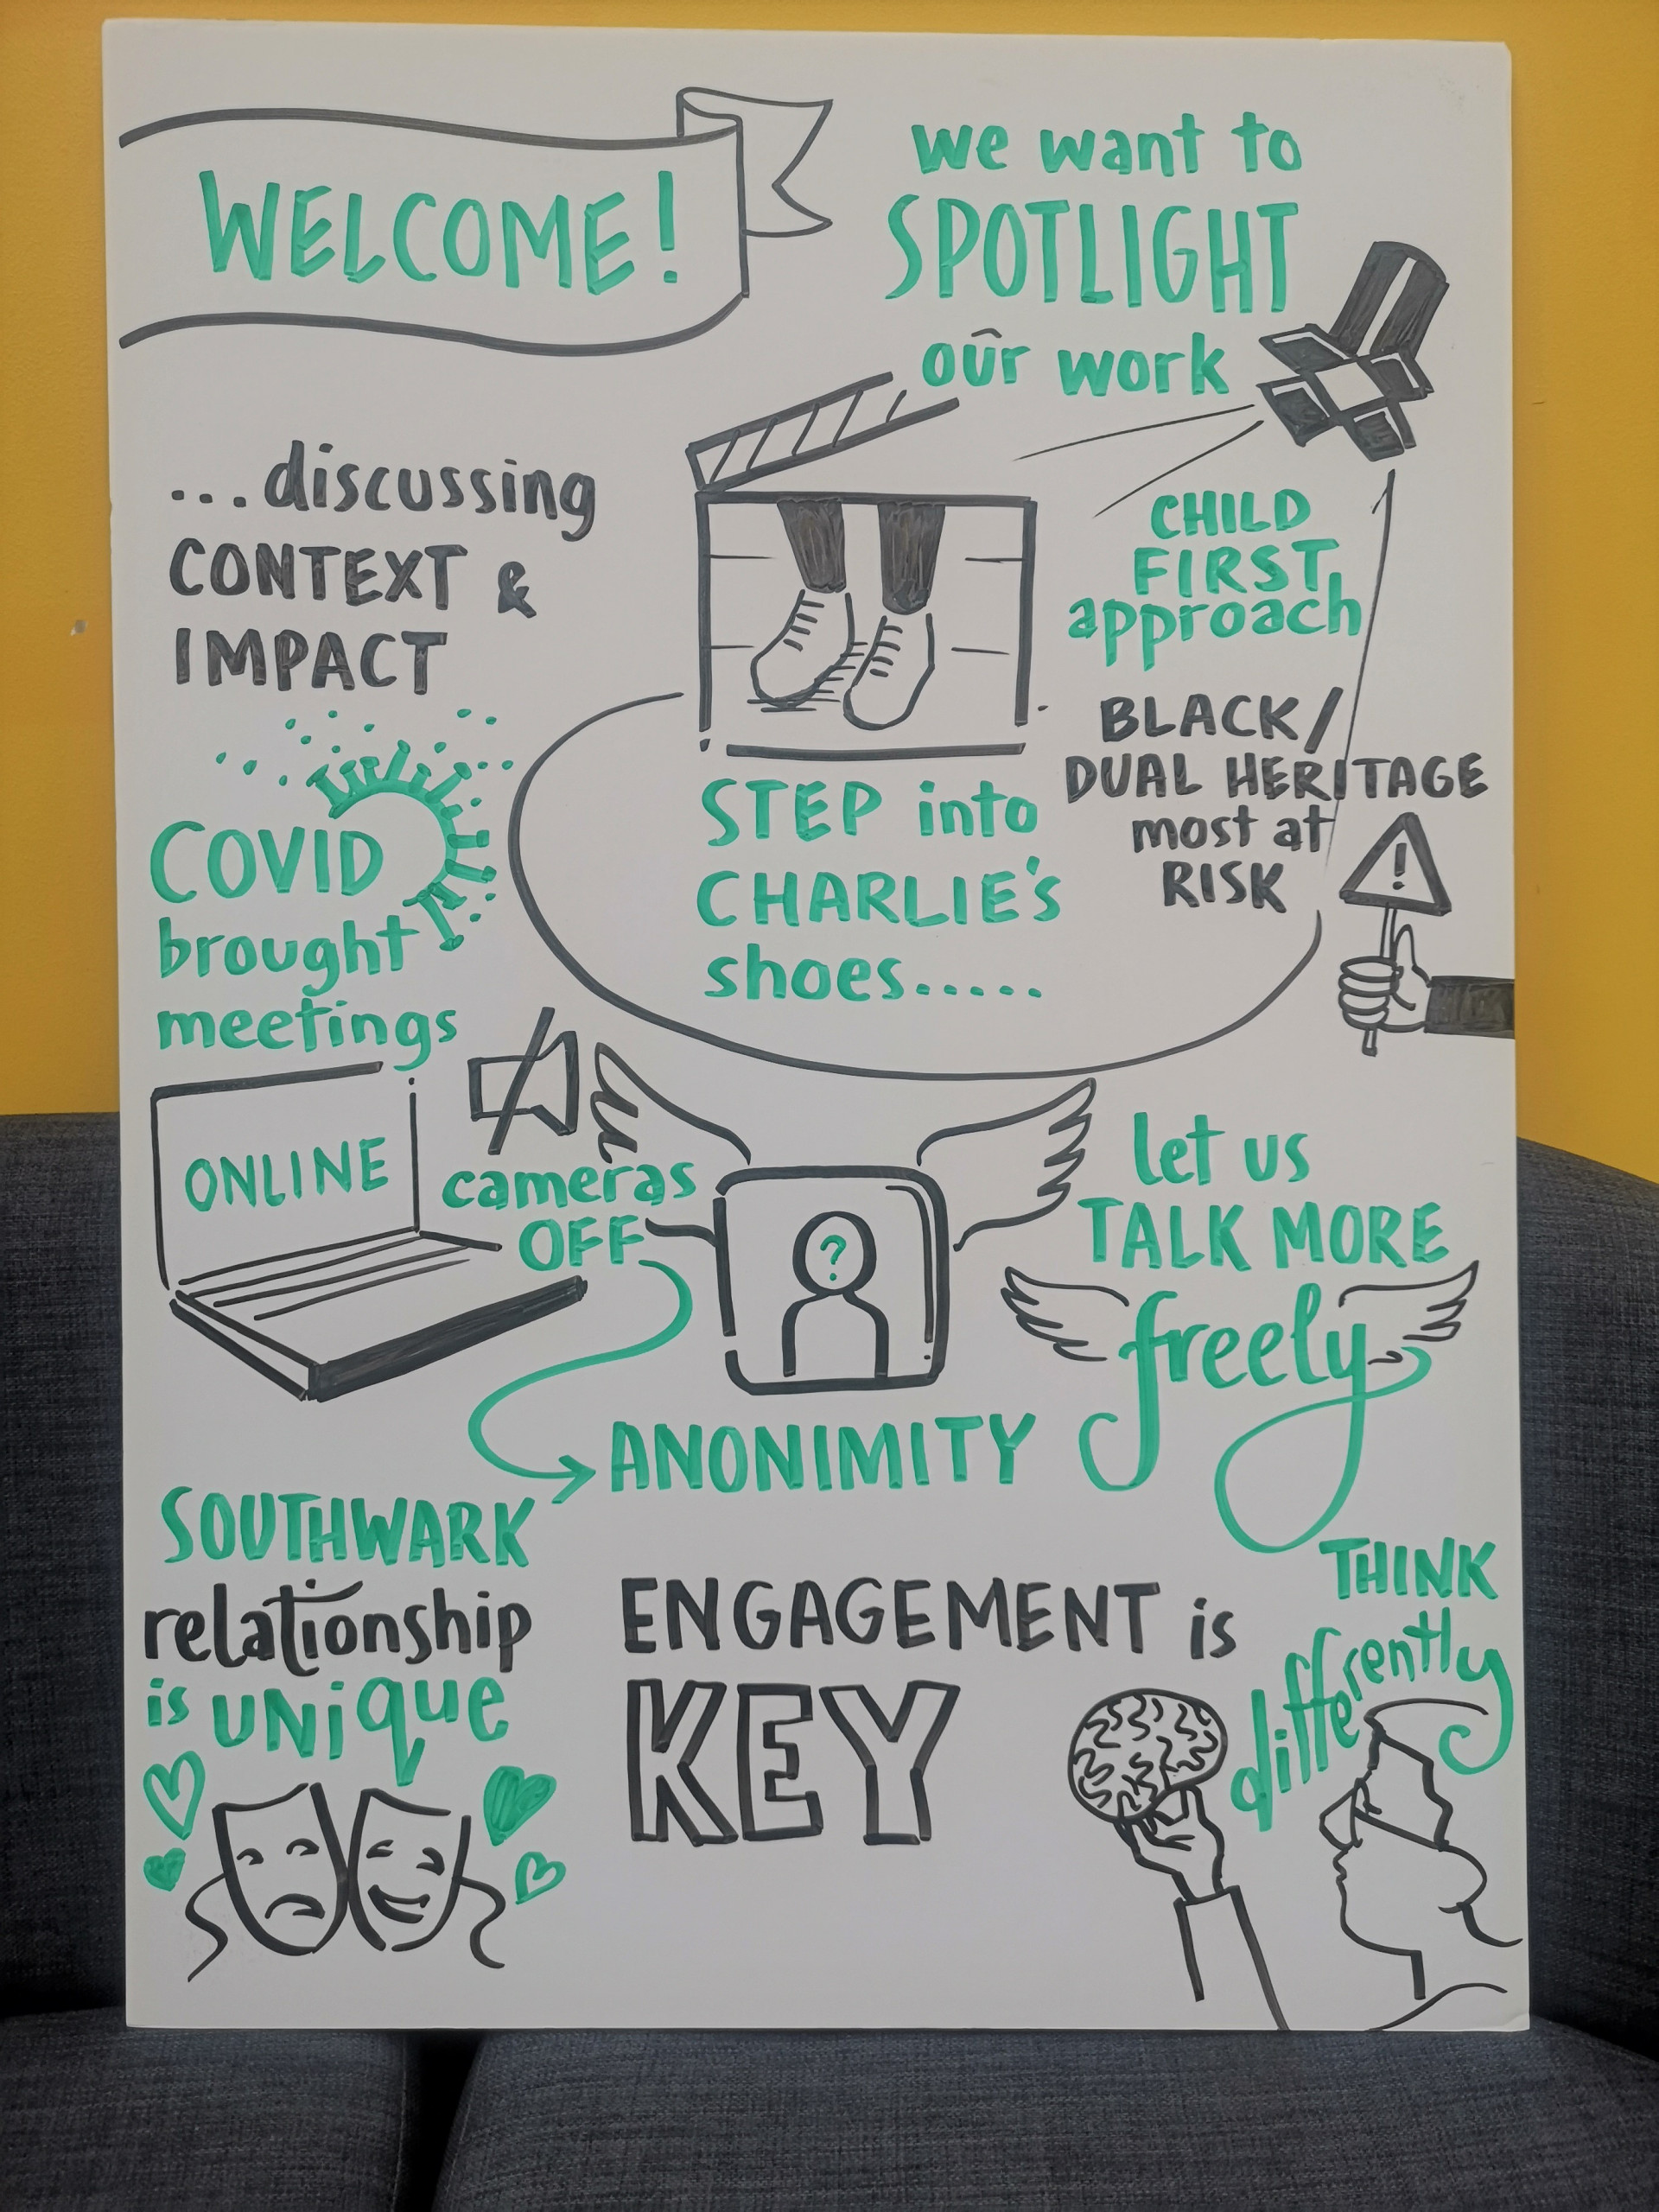 WELCOME!
we want to
SPOTLIGHT
our work
...discussing
CONTEXT &
IMPACT
CHILD
FIRST
approach
BLACK/
DUAL HERITAGE
most at
RISK
!
STEP into
CHARLIE's
shoes.....
COVID
brought
meetings
ONLINE
cameras
OFF
?
ANONIMITY
let us
TALK MORE
freely
SOUTHWARK
relationship
is UNique
ENGAGEMENT is
KEY
THINK
differently